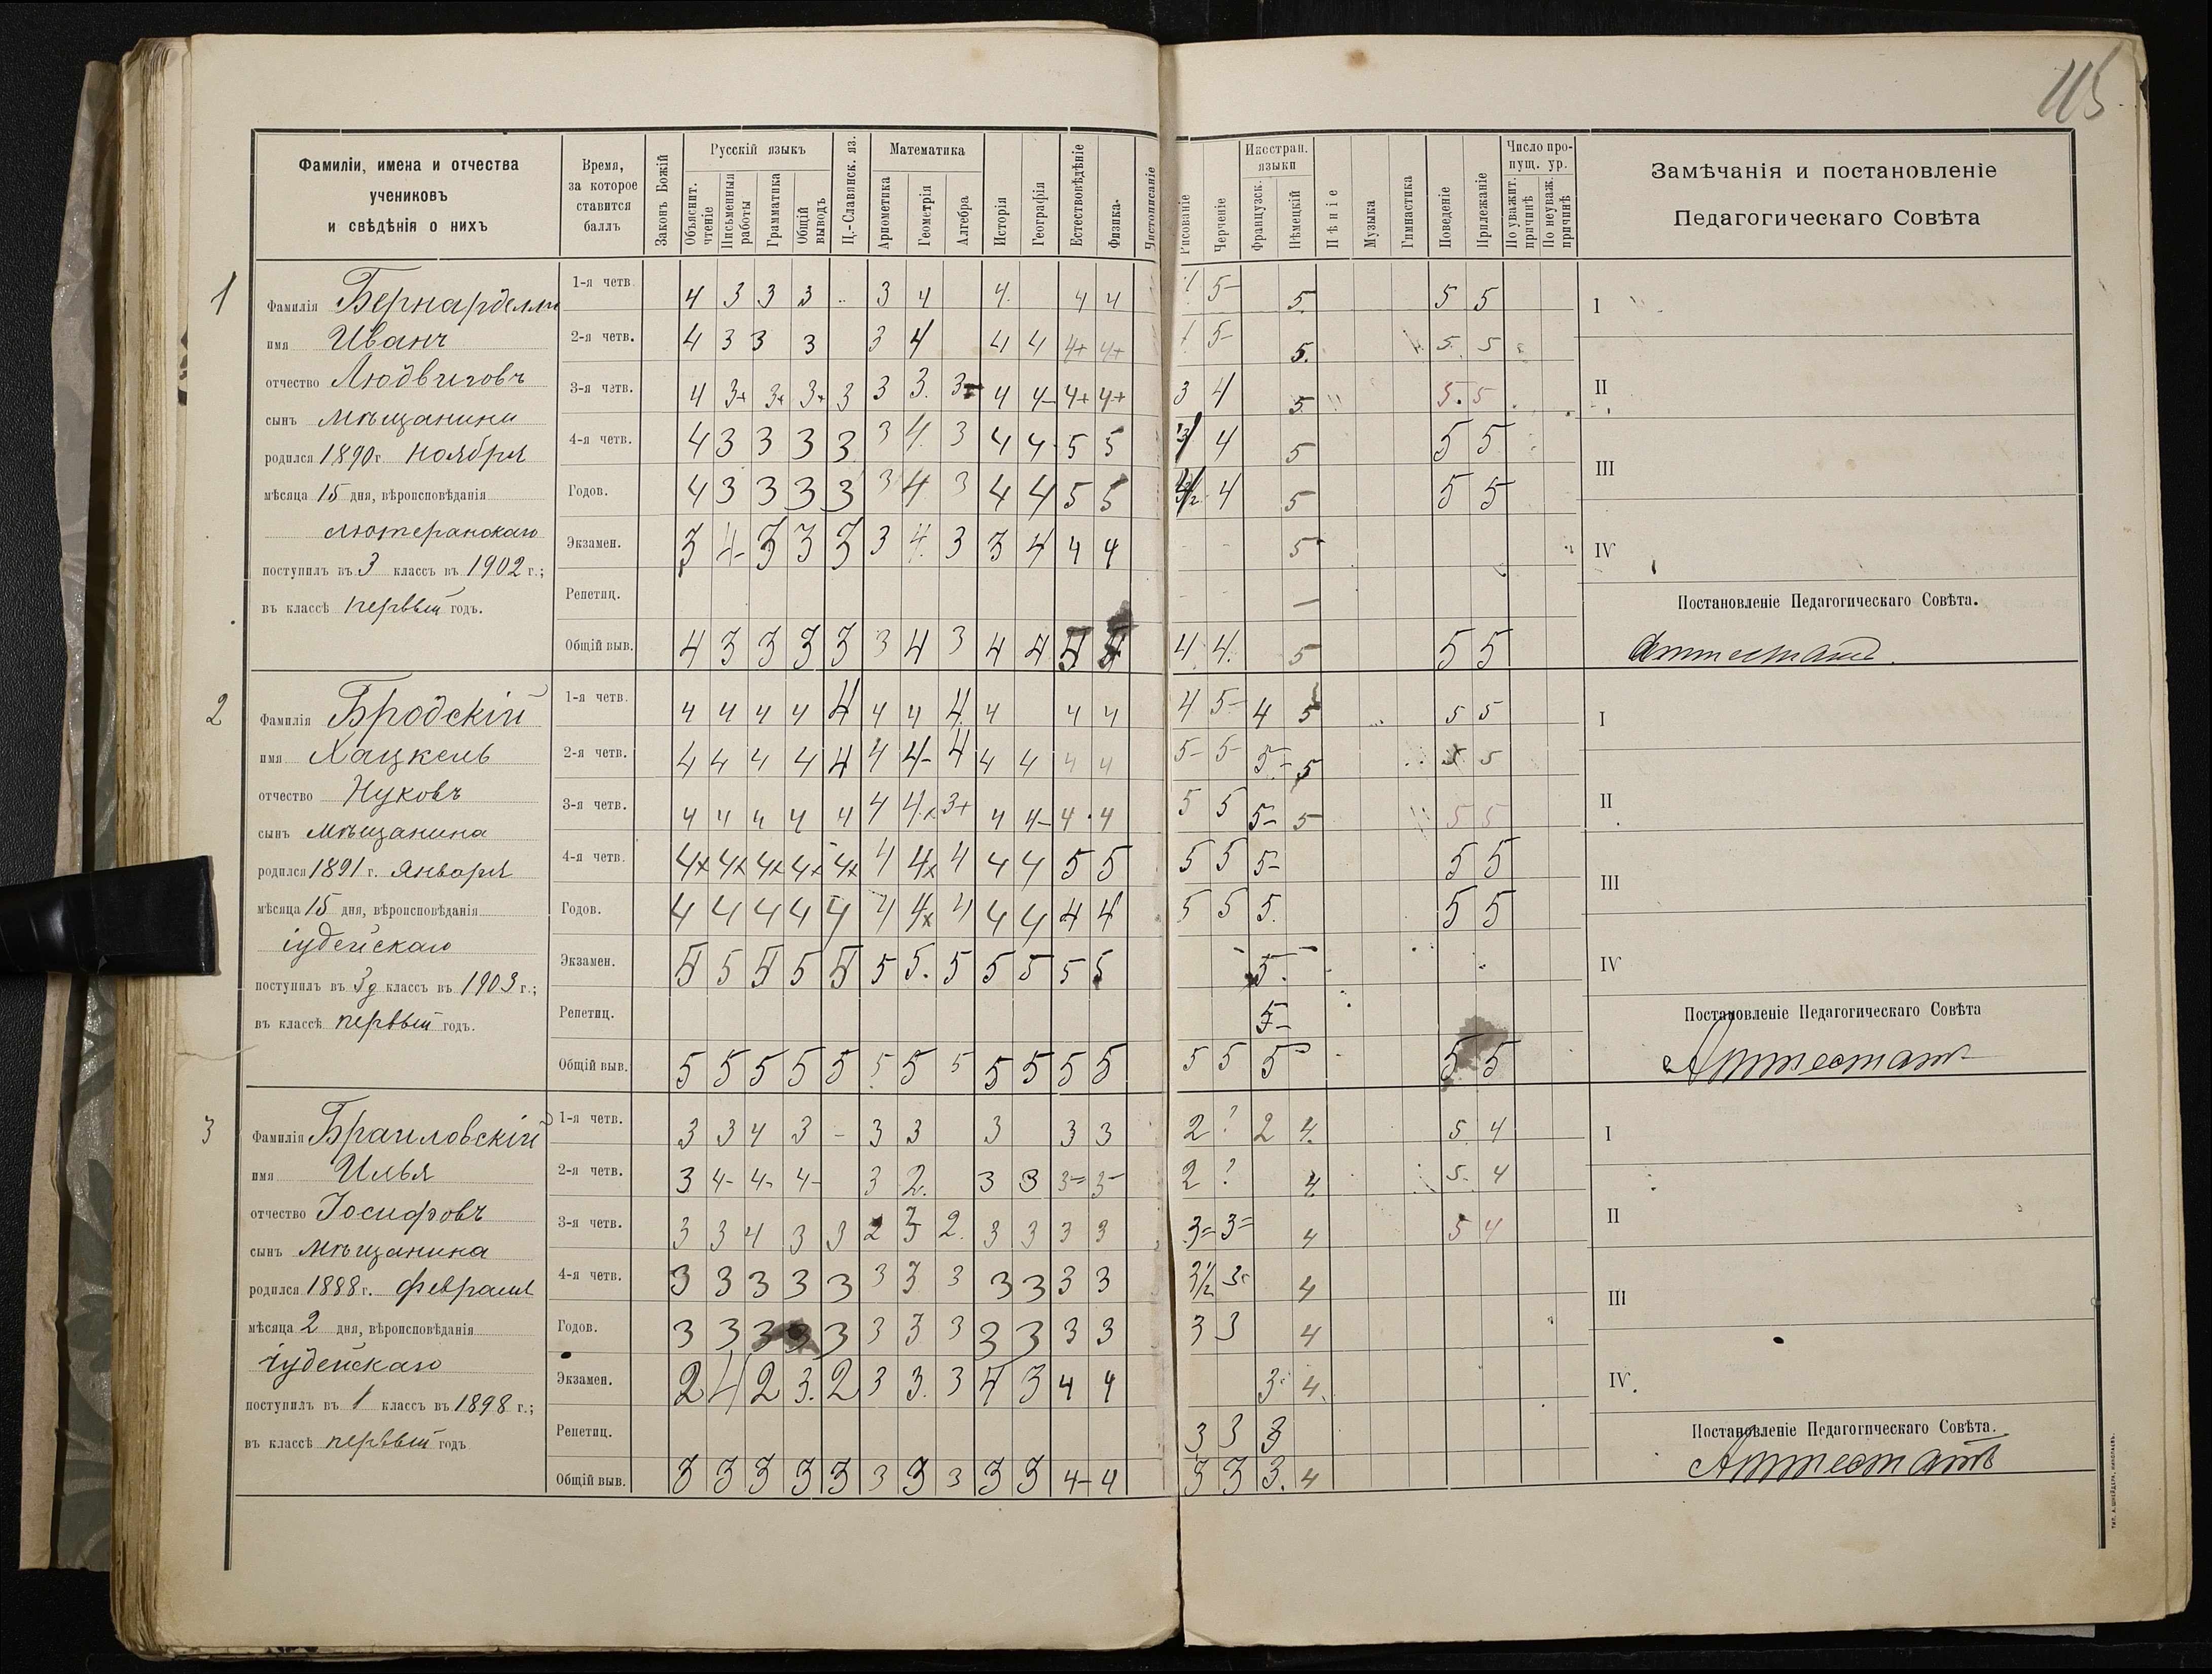 115
Фамиліи, имена и отчества
учениковъ
и свѣдѣнія о нихъ
Время,
за которое
ставится
баллъ
Законъ Божій
Русскій языкъ
Объяснит.
чтеніе
Письменныя
работы
Грамматика
Общій
выводъ
Ц.-Славянск. яз.
Математика
Ариѳметика
Геометрія
Алгебра
Исторія
Географія
Естествовѣдѣніе
Физика.
Чистописаніе
Рисованіе
Черченіе
Иностран.
языки
Французск.
Нѣмецкій
Пѣніе
Музыка
Гимнастика
Поведеніе
Прилежаніе
Число про-
пущ. ур.
По уважит.
причинѣ
По неуваж.
причинѣ
Замѣчанія и постановленіе
Педагогическаго Совѣта
1
Фамилія Бернарделли
имя Иванъ
отчество Людвиговъ
сынъ мѣщанина
родился 1890 г. ноября
мѣсяца 15 дня, вѣроисповѣданія
лютеранскаго
поступилъ въ 3 классъ въ 1902 г.;
въ классѣ первый годъ.
1-я четв. 4 3 3 3 3 4 4 4 4 5- 5 5 5
2-я четв. 4 3 3 3 3 4 4 4 4+ 4+ 5- 5. 5 5
3-я четв. 4 3+ 3+ 3+ 3 3 3. 4 4- 4+ 4+ 3 4 5 5 5
4-я четв. 4 3 3 3 3 3 4 3 4 4 5 5 4 5 5 5
Годов. 4 3 3 3 3 3 4 3 4 4 5 5 4 5 5 5
Экзамен. 3 4- 3 3 3 3 4 3 3 4 4 4 5
Репетиц. —
Общій выв. 4 3 3 3 3 3 4 3 4 4 4 4. 5 5 5
I
II
III
IV
Постановленіе Педагогическаго Совѣта.
Аттестатъ
2
Фамилія Бродскій
имя Хацкель
отчество Нуховъ
сынъ мѣщанина
родился 1891 г. Января
мѣсяца 15 дня, вѣроисповѣданія
іудейскаго
поступилъ въ 3д классъ въ 1903 г.;
въ классѣ первый годъ.
1-я четв. 4 4 4 4 4 4 4 4 4 4 4 4 5- 4 5 5 5
2-я четв. 4 4 4 4 4 4 4- 4 4 4 4 4 5- 5- 5- 5 5 5
3-я четв. 4 4 4 4 4 4 4+ 3+ 4 4- 4 4 5 5 5- 5 5 5
4-я четв. 4+ 4+ 4+ 4+ 4+ 4 4+ 4 4 4 5 5 5 5 5- 5 5
Годов. 4 4 4 4 4 4 4+ 4 4 4 4 4 5 5 5. 5 5
Экзамен. 5 5 5 5 5 5 5. 5 5 5 5 5 5. -
Репетиц. 5-
Общій выв. 5 5 5 5 5 5 5 5 5 5 5 5 5 5 5 5 5
I
II
III
IV
Постановленіе Педагогическаго Совѣта
Аттестатъ
3
Фамилія Браиловскій
имя Илья
отчество Іосифовъ
сынъ мѣщанина
родился 1888 г. февраля
мѣсяца 2 дня, вѣроисповѣданія
іудейскаго
поступилъ въ 1 классъ въ 1898 г.;
въ классѣ первый годъ
1-я четв. 3 3 4 3 - 3 3 3 3 3 2 ? 2 4. 5. 4
2-я четв. 3 4- 4- 4- 3 2. 3 3 3= 3- 2 ? 4 5. 4
3-я четв. 3 3 4 3 3 2 3 2. 3 3 3 3 3= 3= 4 5 4
4-я четв. 3 3 3 3 3 3 3 3 3 3 3 3 3½ 3- 4
Годов. 3 3 3 3 3 3 3 3 3 3 3 3 3 3 4
Экзамен. 2 4 2 3. 2 3 3. 3 4 3 4 4 3- 4.
Репетиц. 3 3 3
Общій выв. 3 3 3 3 3 3 3 3 3 3 4- 4 3 3 3. 4
I
II
III
IV.
Постановленіе Педагогическаго Совѣта.
Аттестатъ